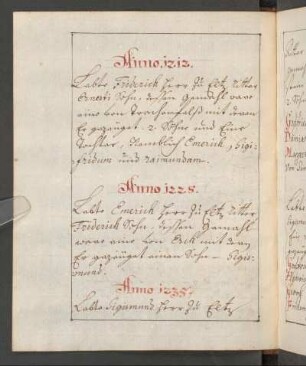 Anno 1212.
Lebte Friderich Herr zu Eltz Ritter
Ernesti Sohn, dessen Gemahl ware
eine von Drachenfelß mit deren
Er gezeuget 2. Söhne und Eine
Tochter, Nemblich Emerich, Sigi-
fridum und Raimundam.
Anno 1225.
Lebte Emerich Herr zu Eltz Ritter
Friderich Sohn, dessen Gemahl
ware eine von Eich mit deren
Er gezeuget einen Sohn Sigis-
mund.
Anno 1235.
Lebte Sigismund Herr zu Eltz